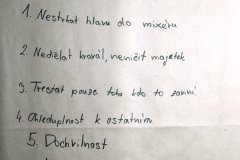 1. Nestrkat hlavu do mixéru
2. Nedělat kravál, neničit majetek
3. Trestat pouze toho kdo to zaviní
4. Ohleduplnost k ostatním
5. Dochvilnost